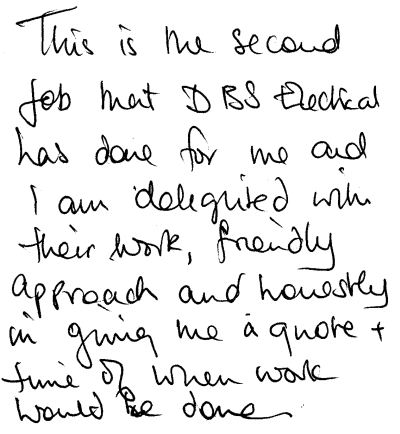 This is the second
job that DBS Electrical
has done for me and
I am delighted with
their work, friendly
approach and honestly
in giving me a quote +
time of when work
would be done